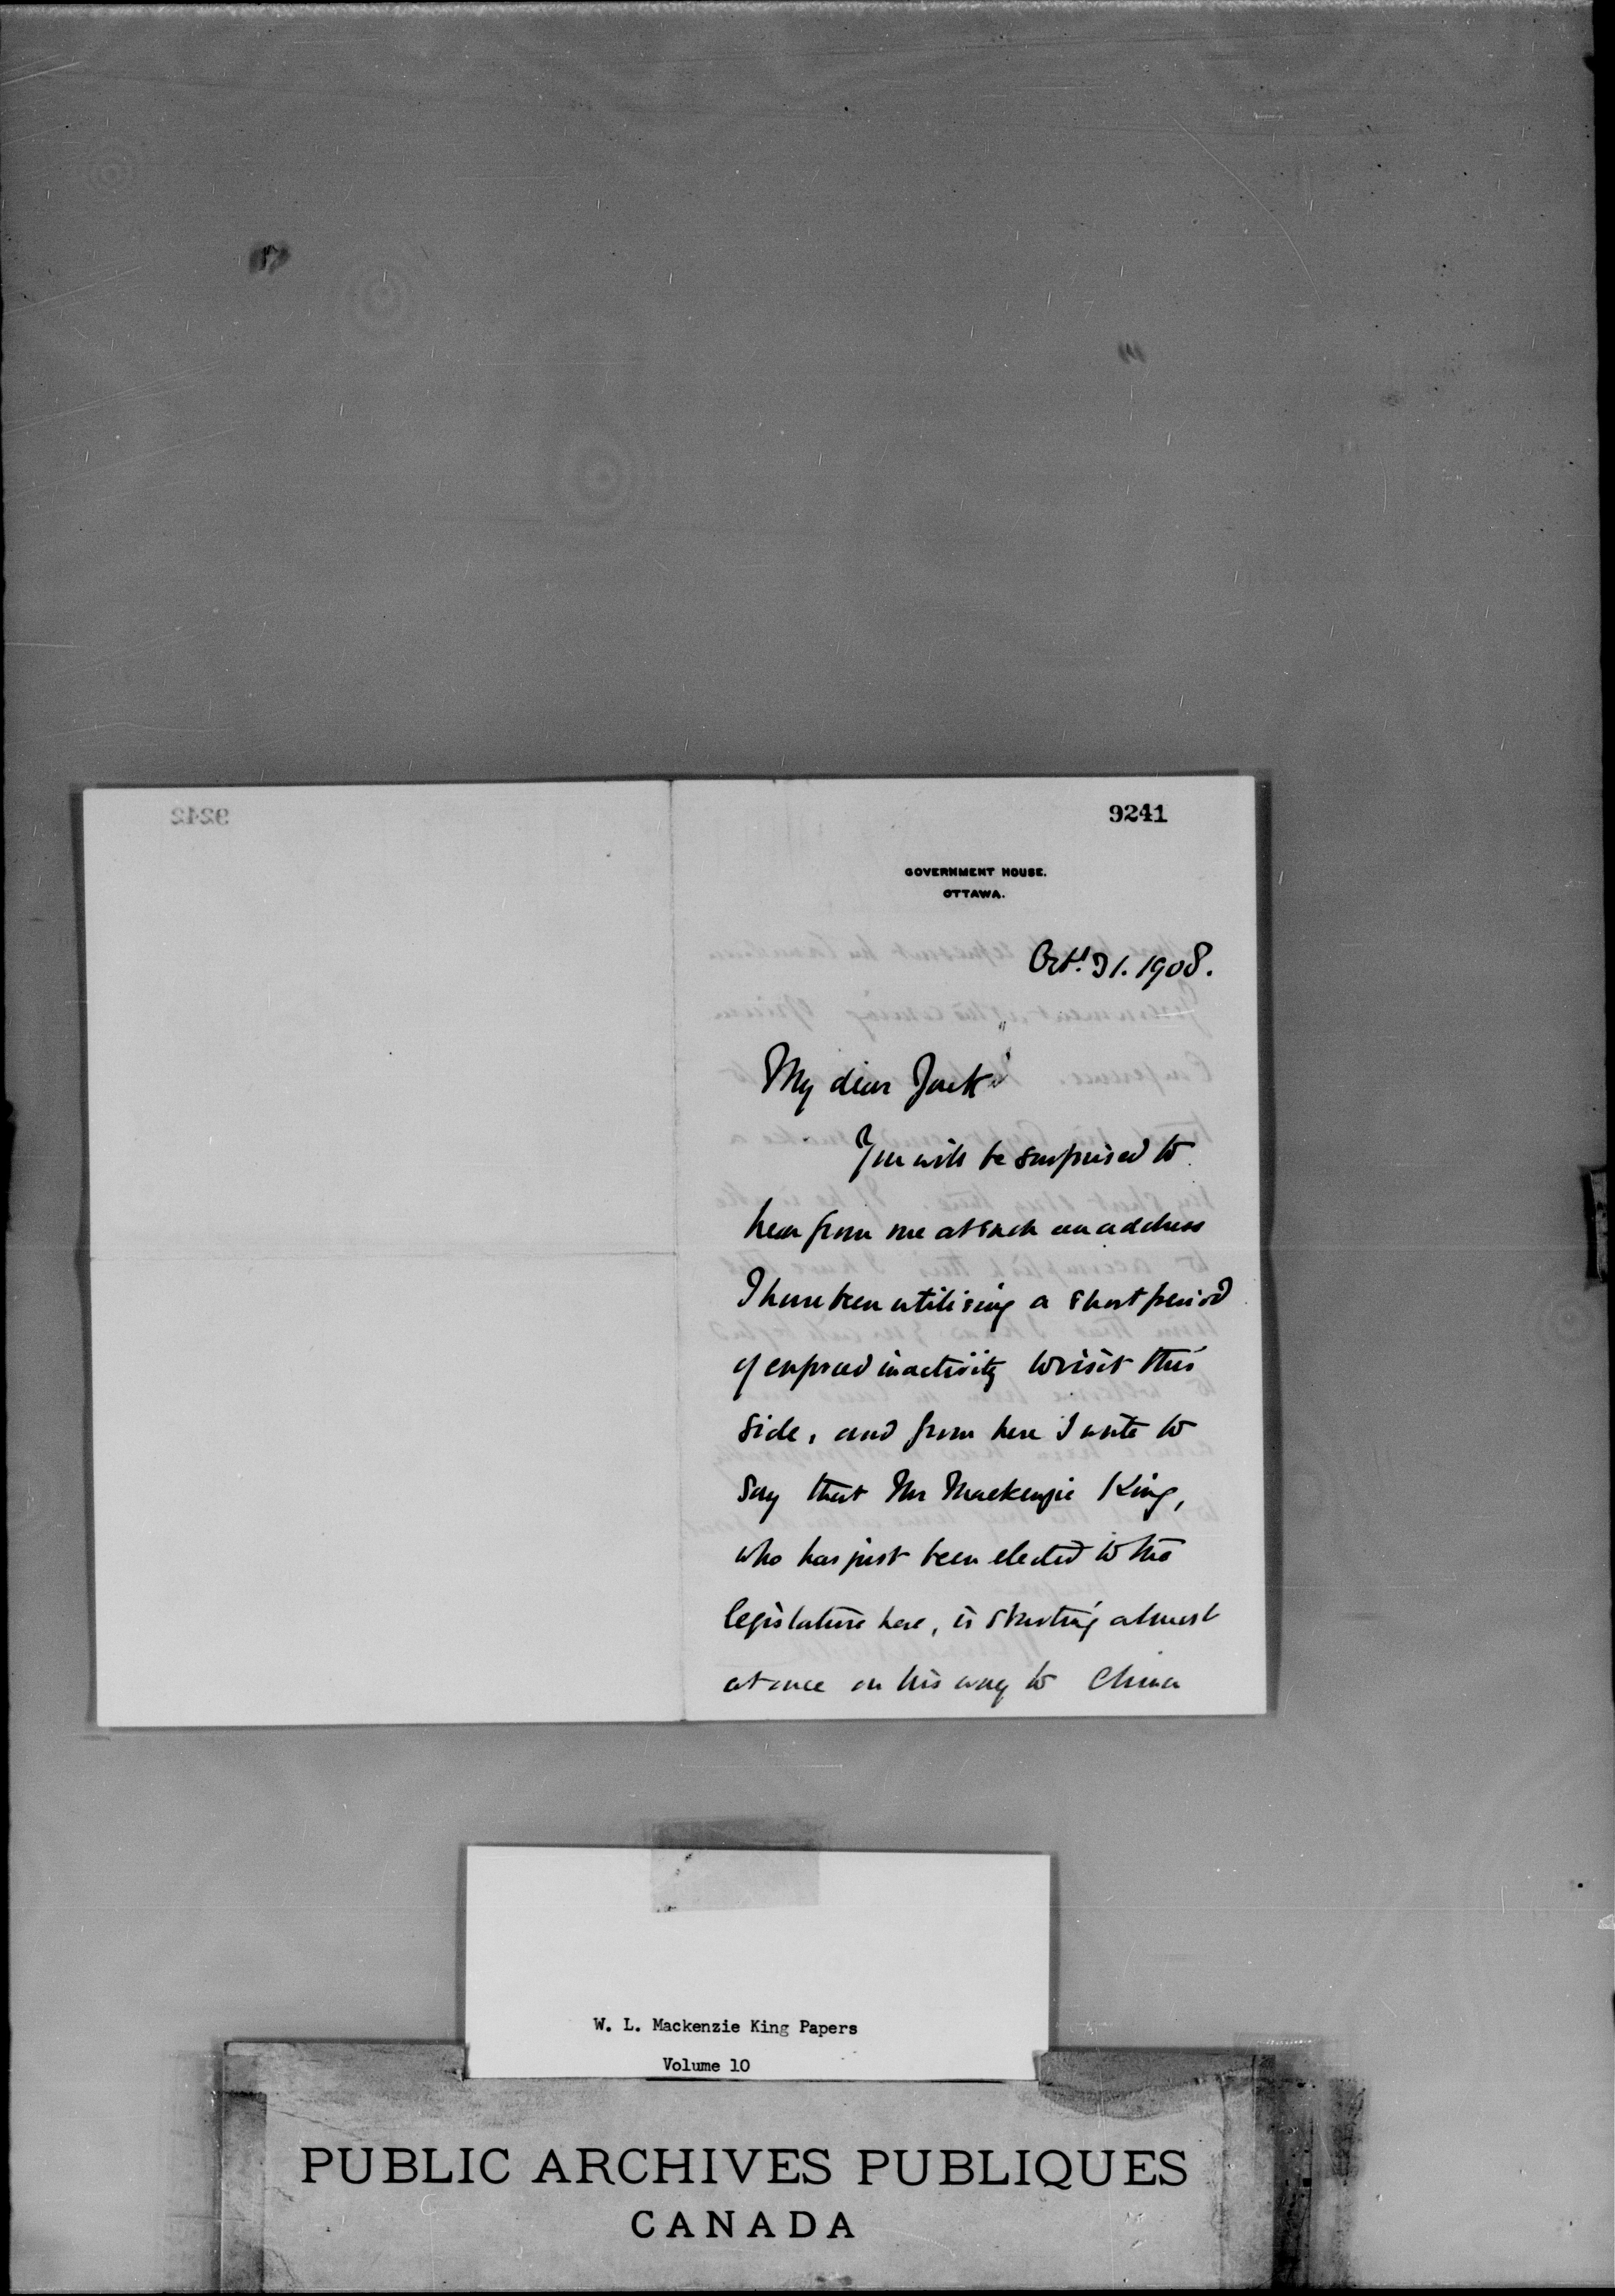 9242
9241
GOVERNMENT HOUSE.
OTTAWA.
Oct. 31. 1908.
My dear Jack
You will be surprised to
hear from me at such an address
I have been utilising a short period
of enforced inactivity to visit this
side, and from here I write to
say that Mr Mackenzie King,
who has just been elected to the
legislature here, is starting almost
at once on his way to China
W. L. Mackenzie King Papers
Volume 10
PUBLIC ARCHIVES PUBLIQUES
CANADA